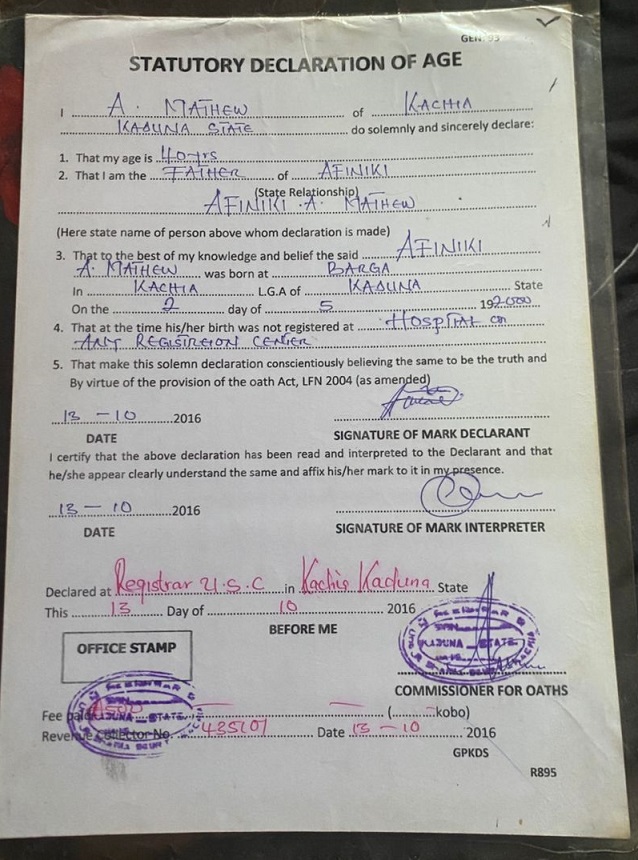 GEN. 93
STATUTORY DECLARATION OF AGE
I A. MATHEW of KACHIA
KADUNA STATE do solemnly and sincerely declare:
1. That my age is 40yrs
2. That I am the FATHER of AFINIKI
(State Relationship)
AFINIKI .A. MATHEW
(Here state name of person above whom declaration is made)
3. That to the best of my knowledge and belief the said AFINIKI
A. MATHEW was born at BARGA
In KACHIA L.G.A of KADUNA State
On the 2 day of 5
4. That at the time his/her birth was not registered at HOSPITAL
ANY REGISTREION CENTER
5. That make this solemn declaration conscientiously believing the same to be the truth and
By virtue of the provision of the oath Act, LFN 2004 (as amended)
13 - 10 2016
DATE SIGNATURE OF MARK DECLARANT
I certify that the above declaration has been read and interpreted to the Declarant and that
he/she appear clearly understand the same and affix his/her mark to it in my presence.
13 - 10 2016
DATE SIGNATURE OF MARK INTERPRETER
Declared at Registrar U.S.C in Kachia Kaduna State
This 13 Day of 10 2016
BEFORE ME
OFFICE STAMP
KADUNA STATE
COMMISSIONER FOR OATHS
Fee paid (kobo)
KADUNA STATE
Revenue Collector No. 435101 Date 13 - 10 2016
GPKDS
R895